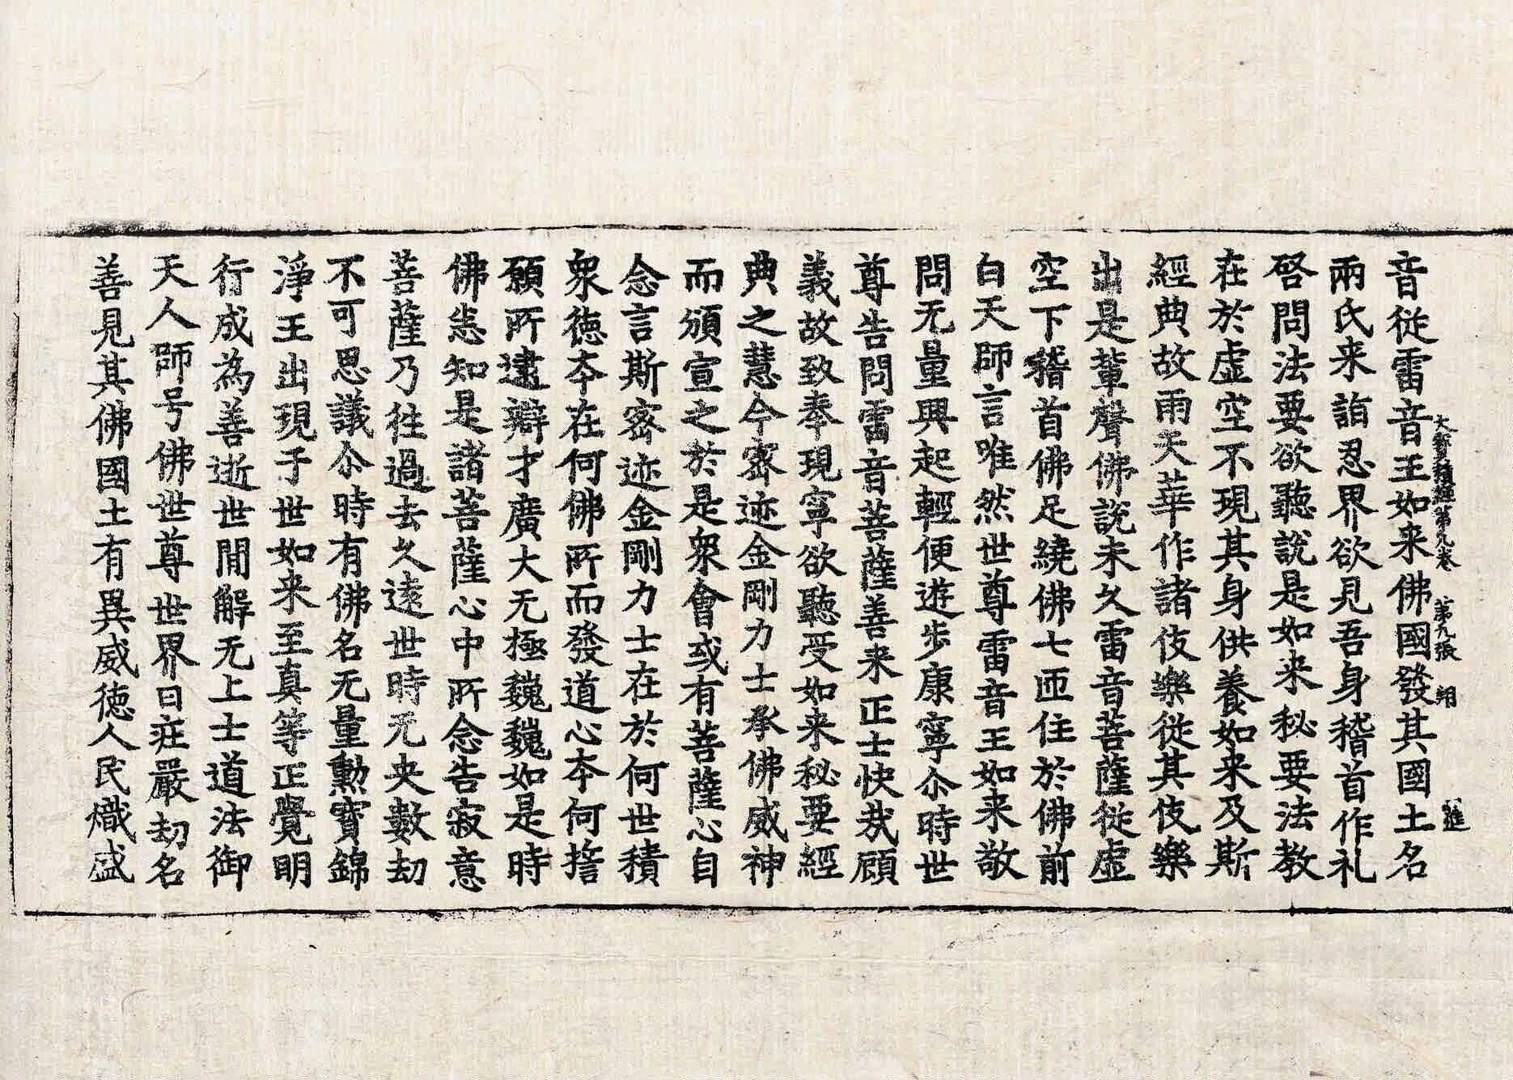 音従雷音王如来佛國發其國土名
大寳積經第九卷　第九張　翔
兩氏来詣忍界欲見吾身稽首作礼
啓問法要欲聽說是如来秘要法教
在於虚空不現其身供養如来及斯
經典故雨天華作諸伎樂従其伎樂
出是輩聲佛說未久雷音菩薩従虚
空下稽首佛足繞佛七匝住於佛前
白天師言唯然世尊雷音王如来敬
問无量興起輕便遊步康寧尒時世
尊告問雷音菩薩善来正士快㢤顧
義故致奉現寧欲聽受如来秘要經
典之慧今密迹金剛力士承佛威神
而頒宣之於是衆會或有菩薩心自
念言斯密迹金剛力士在於何世積
衆徳夲在何佛所而發道心夲何擔
願所逮辯才廣大无極巍巍如是時
佛悉知是諸菩薩心中所念告寂意
菩薩乃往過去久遠世時无央數劫
不可思議尒時有佛名无量勲寳錦
淨王出現于世如来至真等正覺明
行成為善逝世閒解无上士道法御
天人師号佛世尊世界曰莊嚴劫名
善見其佛國土有異威徳人民熾盛